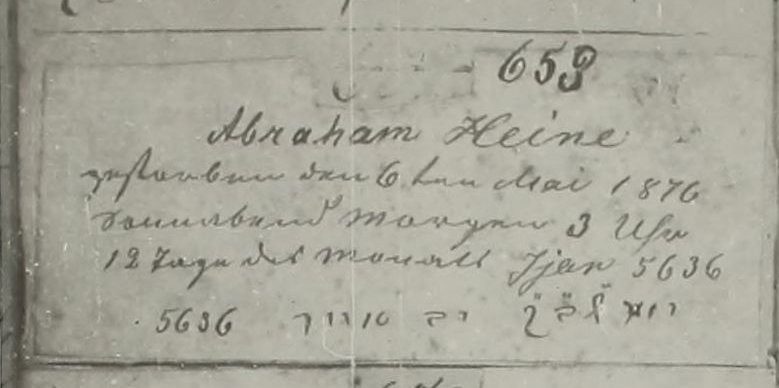 653
Abraham Heine
gestorben den 6ten Mai 1876
Sonnabend Morgen 3 Uhr
12 Tage des Monats Jjar 5636
5636